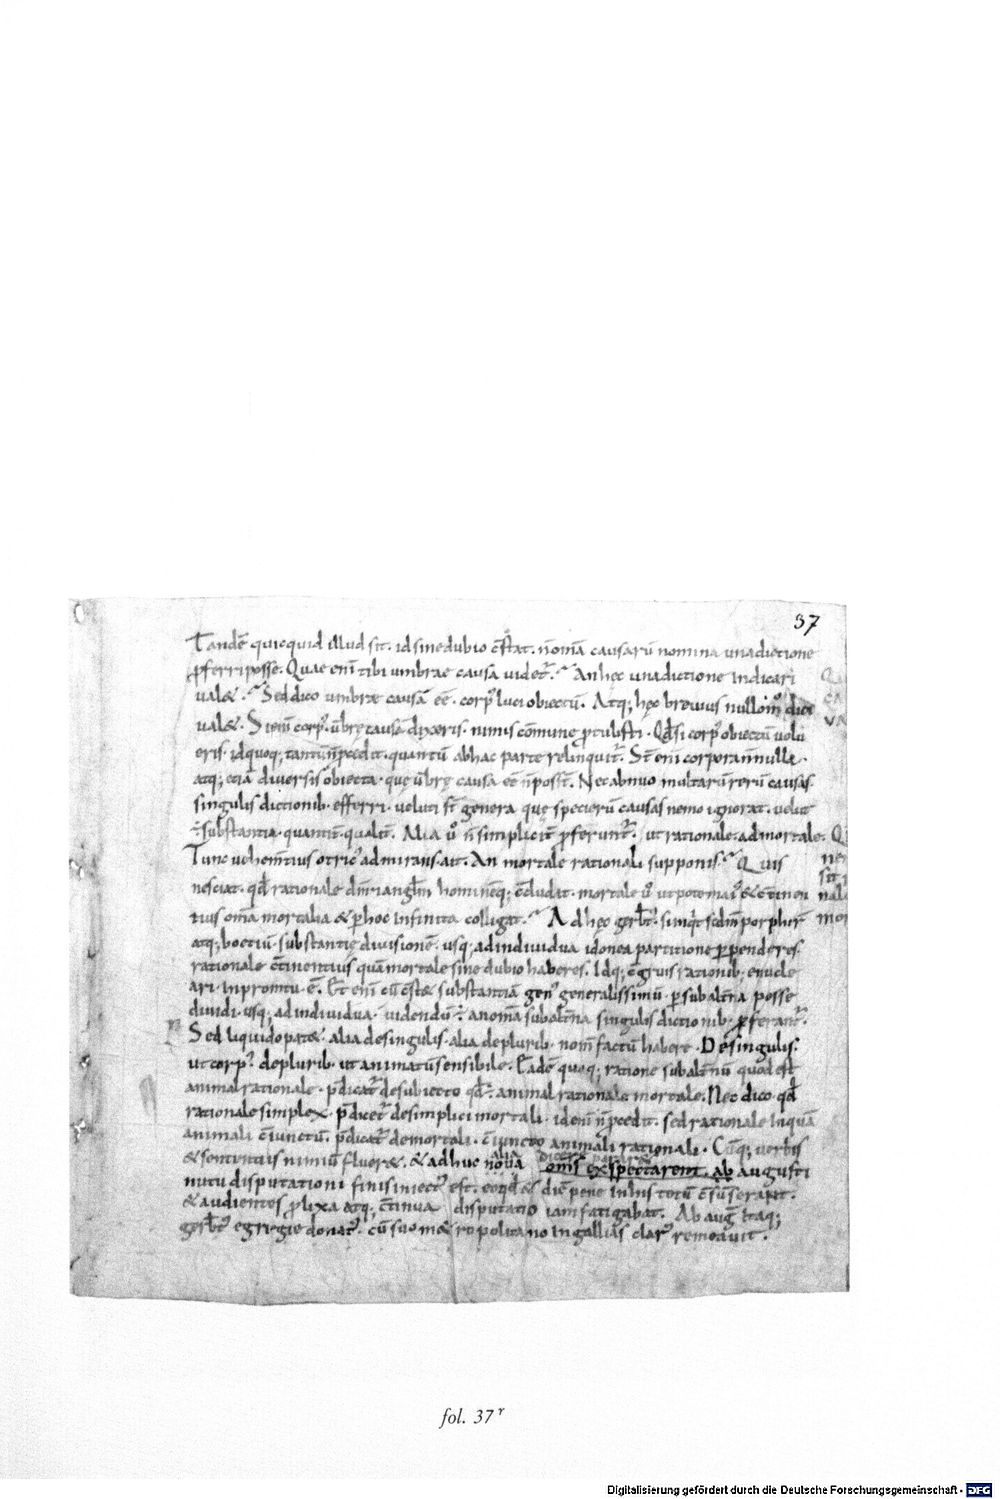 37
Tandē quicquid illud sit. id sine dubio c̄stat. n̄ om̄ia causarū nomina una dictione
p̄ferri posse. Quae eni tibi umbrae causa videt̄. An hęc una dictione indicari
ual&. Sed dico umbrae causā eē. corp' luci obiectū. Atq; hęc breuius nullo m̊ dici
ual&. Si eni corp' ūbrę causā dixeris. nimis cōmune ptulisti. Qd si corp' obiectū uolu
eris. id quoq; tantū n̄ p̄cedit. quantū ab hac parte relinquit̄. St̄ eni corpora n̄nulla.
atq; etiā diuersis obiecta. quę ūbrę causa eē n̄ poss̄t. Nec abnuo multarū rerū causas
singulis dictionib. efferri. ueluti st̄ genera quę specierū causas nemo ignorat. uelut
ē substantia. quantit̄. qualit̄. Alia ů n̄ simplicit̄ pferunt̄. ut rationale. ad mortale.
Tunc uehem̄tius otric' admirans. ait. An mortale rationali supponis. Quis
nesciat. qd rationale dm̄ & anglm̄ hominēq; c̄cludat. mortale ů utpote mai' & c̄tinen
tius om̄ia mortalia & p hoc infinita colligat. Ad hęc gerbt̄'. si inqt scdm porphir
atq; boetiū. substantię diuisionē. usq; ad indiuidua idonea partitione ppenderes.
rationale c̄tinentius quā mortale sine dubio haberes. Idq; c̄gruis rationib. enucle
ari. inpromtu. ē. Et eni cū c̄st& substantiā gen' generalissimū. p subalt̄na posse
diuidi. usq; ad indiuidua. uidendū ē an om̄ia subalt̄na singulis dictionib. pferant̄.
Sed liquido pat&. alia de singulis. alia de plurib. nom̄ factū habere. De singulis.
ut corp'. de plurib. ut animatū sensibile. Eadē quoq; ratione subalt̄nū quod est
animal rationale. p̄dicat̄ de subiecto qd ē. animal rationale mortale. Nec dico qd
rationale simplex. p̄dicet̄ de simplici mortali. id eni n̄ p̄cedit. sed rationale inquā
animali c̄iunctū. p̄dicat̄ de mortali. c̄iuncto animali rationali. Cūq; uerbis
& sententiis nimiū fluer&. & adhuc alia
dicere pararet
omīs exspectarent. ab augusti
nutu disputationi finis iniect' est. eo qd & diē pene in his totū c̄sūserant.
& audientes plixa atq; c̄tinua disputatio iam fatigabat. Ab aug itaq;
gerbt̄' egregie donat'. cū suo m&ropolitano in gallias clar' remeauit.
fol. 37 r
Digitalisierung gefördert durch die Deutsche Forschungsgemeinschaft - DFG